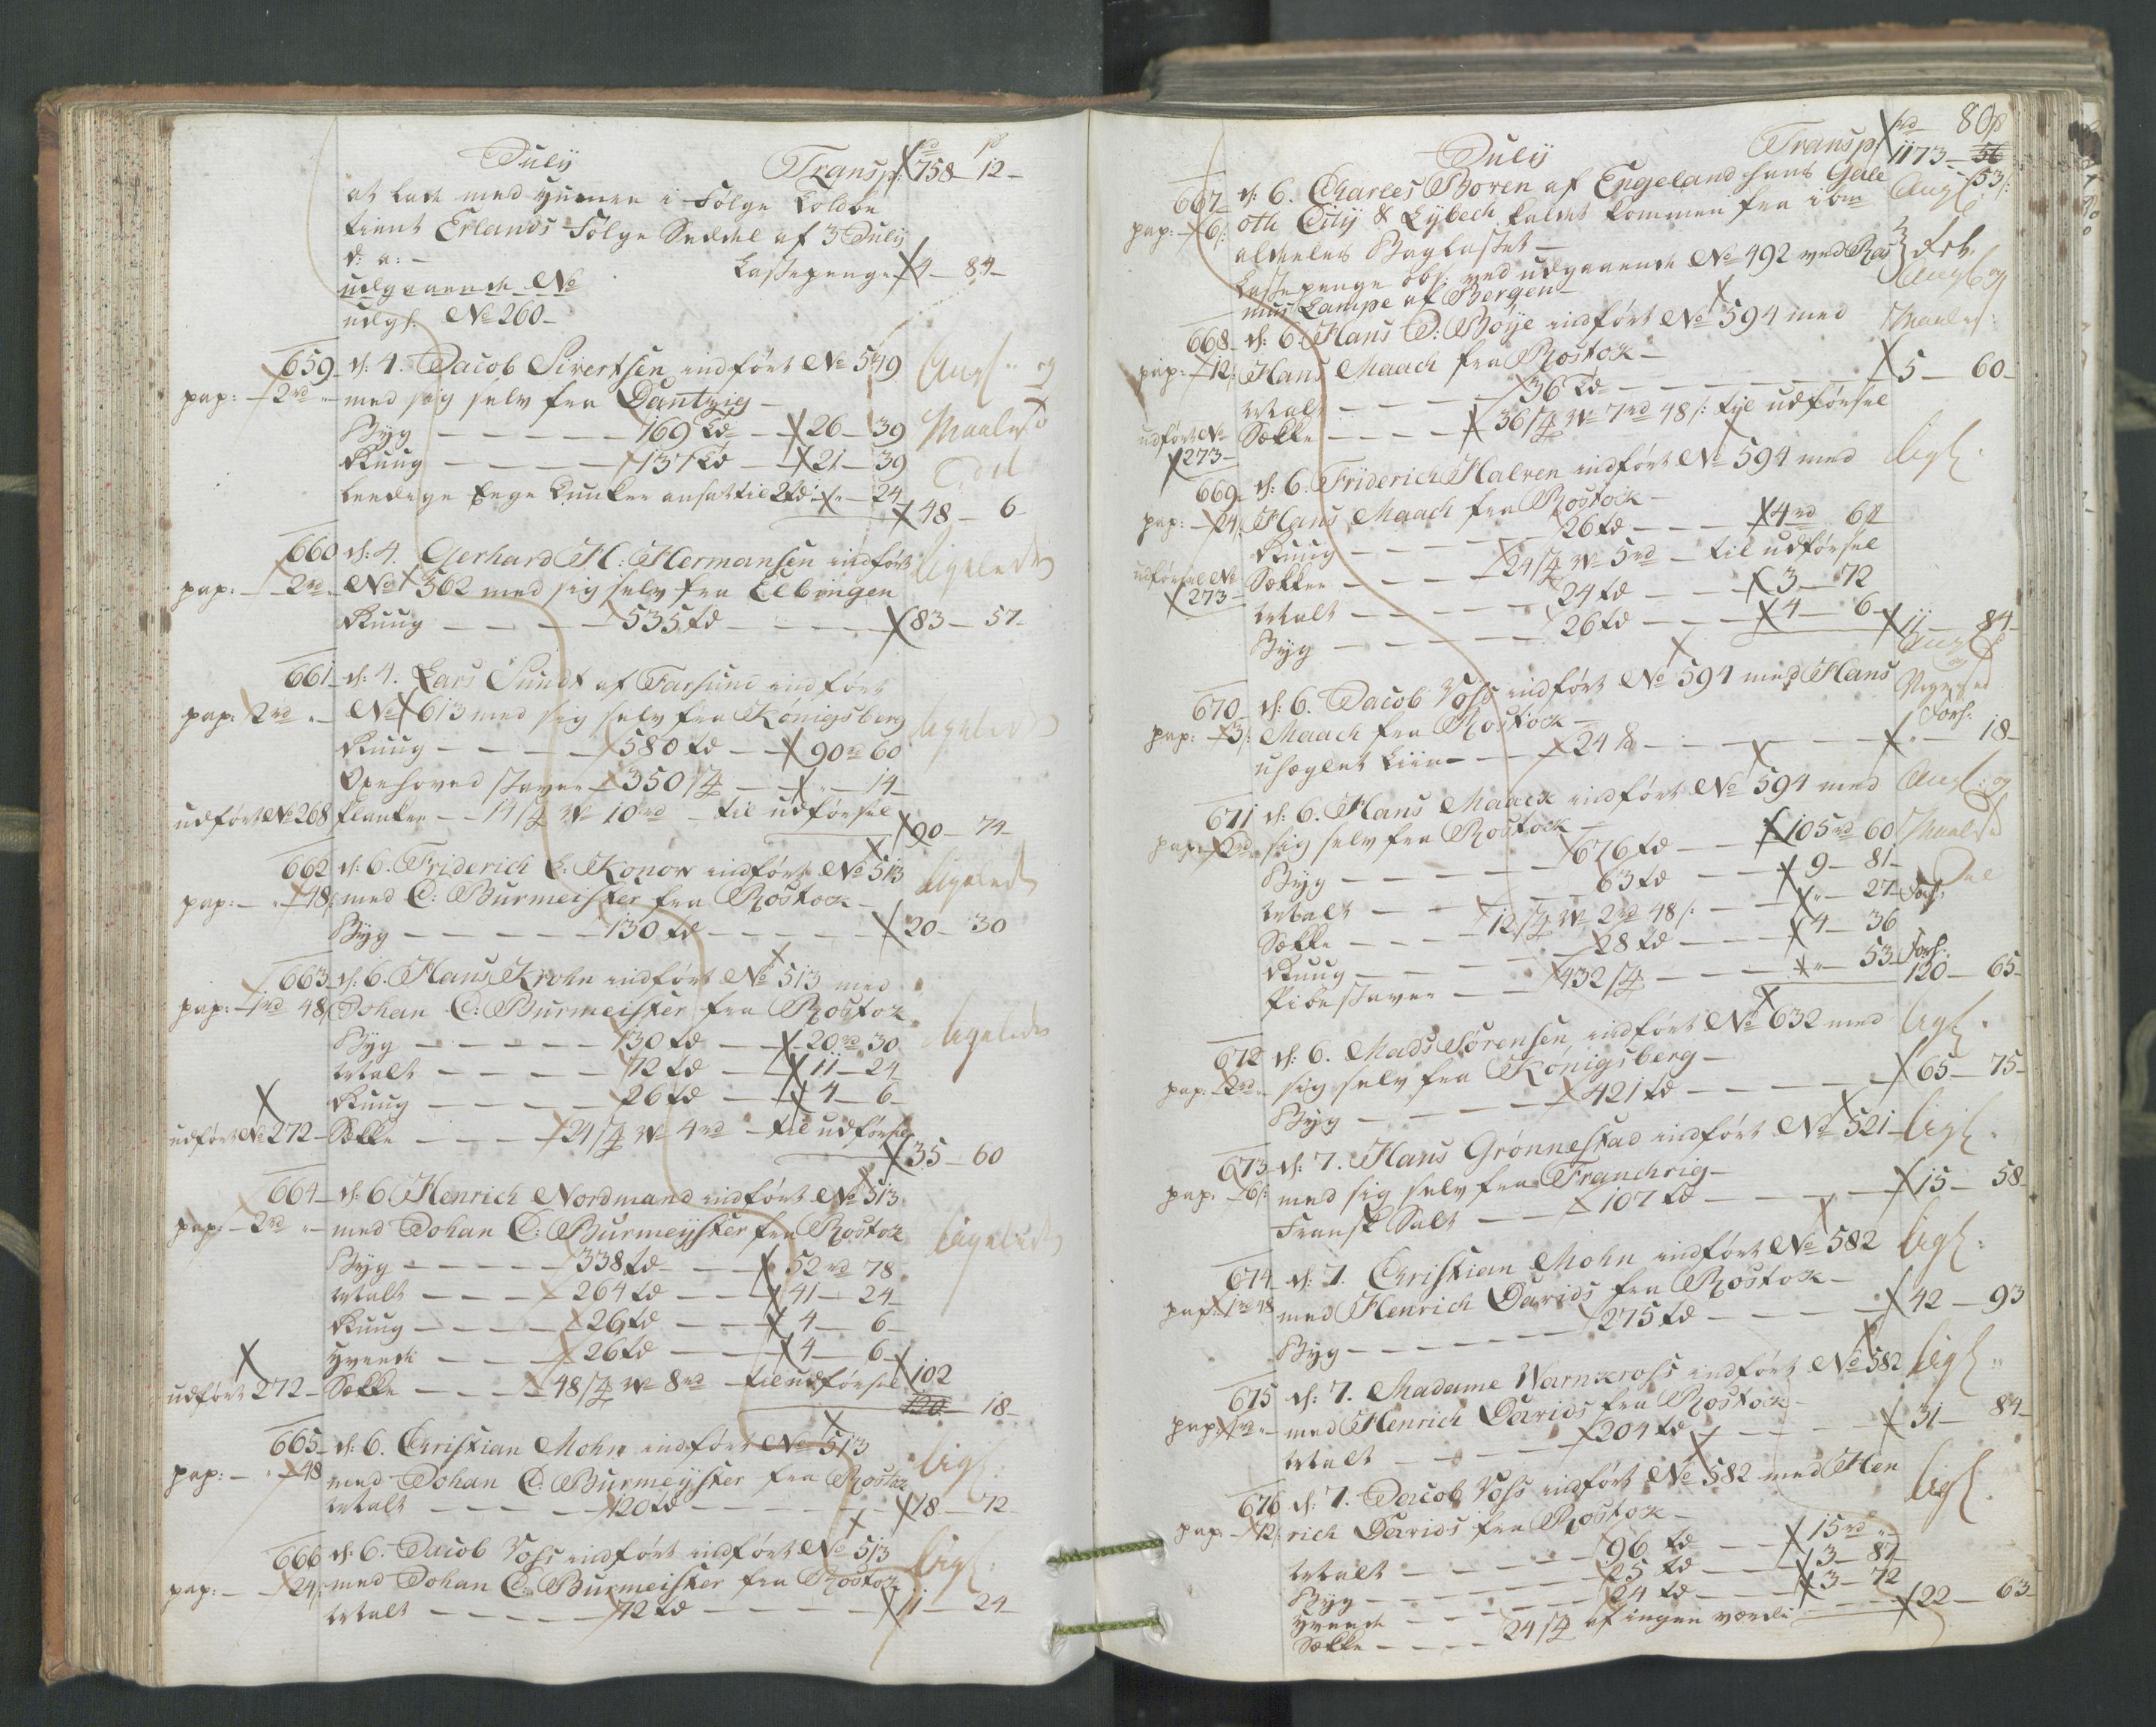 July
Transp: 758 - 12 -
at lade med hiemen i følge Toldbe
tient Erlands Følge Seddel af 3 July
d: a: -
Lastepenge 4 - 84 -
udgaaende No
udgl. No 260 -
659 d: 4. Jacob Sivertsen indført No 549
pap: - 2 rd „ - med sig selv fra Dantzig -
Byg - - - - 169 td - - 26 - 39
Ruug - - - - 137 td - - 21 - 39
ansat til 2 rd „ - 24
48 - 6 -
660 d: 4. Gerhard H: Hermansen indført Ligeledes
pap: - 2 rd - No 562 med sig selv fra Elbingen
Ruug - - - - 535 td - - - 83 - 57 -
661 d: 4. Lars Sundt af Farsund indført
pap: 2 rd „ - No 613 med sig selv fra Königsberg Ligeledes
Ruug - - - - 580 td - - 90 rd 60
Oxehoved staver - 350 - - „ - 14 -
udført No 268 Planker - - 14 W 10 rd - til udførsel
90 - 74 -
662 d: 6. Friderich L: Konow indført No 513 Ligeledes
pap: - „ 48 med C: Burmeister fra Rostock -
Byg - - - - 130 td - - - - 20 - 30
663 d: 6. Hans Krohn indført No 513 med
pap: - 1 rd 48 Johan C: Burmeister fra Rostok Ligeledes
Byg - - - - 130 td - - 20 rd 30
Malt - - - - 72 td - - 11 - 24
Ruug - - - - 26 td - - 4 - 6 -
udført No 272 - Sække - - - 24 W 4 rd - til udførsel
35 - 60
664 - d: 6 Henrich Nordmand indført No 513
pap: - 2 rd „ - med Johan C: Burmeyster fra Rostok Ligeledes
Byg - - - - 338 td - - 52 rd 78
Malt - - - - 264 td - - 41 - 24
Ruug - - - - 26 td - - 4 - 6 -
Hvede - - - - 26 td - - 4 - 6 -
udført 272 - Sække - - - 48 W 8 rd - til udførsel 102
120 - 18 -
665 - d: 6. Christian Mohn indført No 513 Ligl.
pap: - „ 48 med Johan C: Burmeyster fra Rostok
Malt - - - - 120 td - - - - 18 - 72 -
666 d: 6. Jacob Voss indført indført No 513 Ligl.
pap: - - 24 med Johan C: Burmeister fra Rostok
Malt - - - - 72 td - - - - 11 - 24 -
80
July
Transp 1173 - 56
53
667 d: 6. Charles Boren af Engeland hans Gale
pap: - 6 oth City & Lybech kaldet kommen fra
aldeeles Baglastet -
Lastepenge obs: ved udgaaende No 492 ved Ras
mus Lampe af Bergen -
668 - d: 6. Hans D: Boije indført No 594 med
pap: - 12 Hans Maach fra Rostok -
Malt - - - - 36 td - - - - 5 - 60 -
udført No 273 - Sække - - - 36 W 7 rd 48 til udførsel
669 d: 6. Friderich Halven indført No 594 med Ligl.
pap: - 24 Hans Maach fra Rostock -
Ruug - - - - 26 td - - - 4 rd 6
udførsel No 273 - Sække - - - 24 W 5 rd - til udførsel
Malt - - - - 24 td - - 3 - 72
Byg - - - - 26 td - - - 4 - 6 11 - 84 -
670 d: 6. Jacob Voss indført No 594 med Hans
pap: - 3 Maach fra Rostock -
uhæglet Liin - - - 24 - - - „ - 18 -
671 d: 6. Hans Maack indført No 594 med
pap: - 2 rd sig selv fra Rostock -
Byg - - - - 676 td - - 105 rd 60
Malt - - - - 63 td - - 9 - 81 -
Sække - - - 12 W 2 rd 48 - - „ - 27
Ruug - - - - 28 td - - - 4 - 36
Pibestaver - - - 432 - - - „ - 53 120 - 65 -
672 d: 6. Mads Sørensen, indført No 632 med Ligl.
pap: - 2 rd - sig selv fra Königsberg -
Byg - - - - 421 td - - - - 65 - 75 -
673 d: 7. Hans Grønnestad indført No 521 - Ligl.
pap: - 6 med sig selv fra Franchrig -
Fransk Salt - - - 107 td - - - - 15 - 58
674 d: 7. Christian Mohn indført No 582 Ligl.
pap: 1 rd 48 med Henrich Davids fra Rostok -
Byg - - - - 275 td - - - - 42 - 93
675 d: 7. Madame Warnkross indført No 582 Ligl.
pap: 1 rd - med Henrich Davids fra Rostock -
Malt - - - 204 td - - - - 31 - 84 -
676 d: 7. Jacob Voss indført No 582 med Hen Ligl.
pap: - 72 rich Davids fra Rostok -
Malt - - - - 96 td - - 15 rd „ -
Byg - - - - 25 td - - - 3 - 87
Hvede - - - - 24 td - - 3 - 72
Sække - - - 24 af ingen værdi - - 22 - 63 -